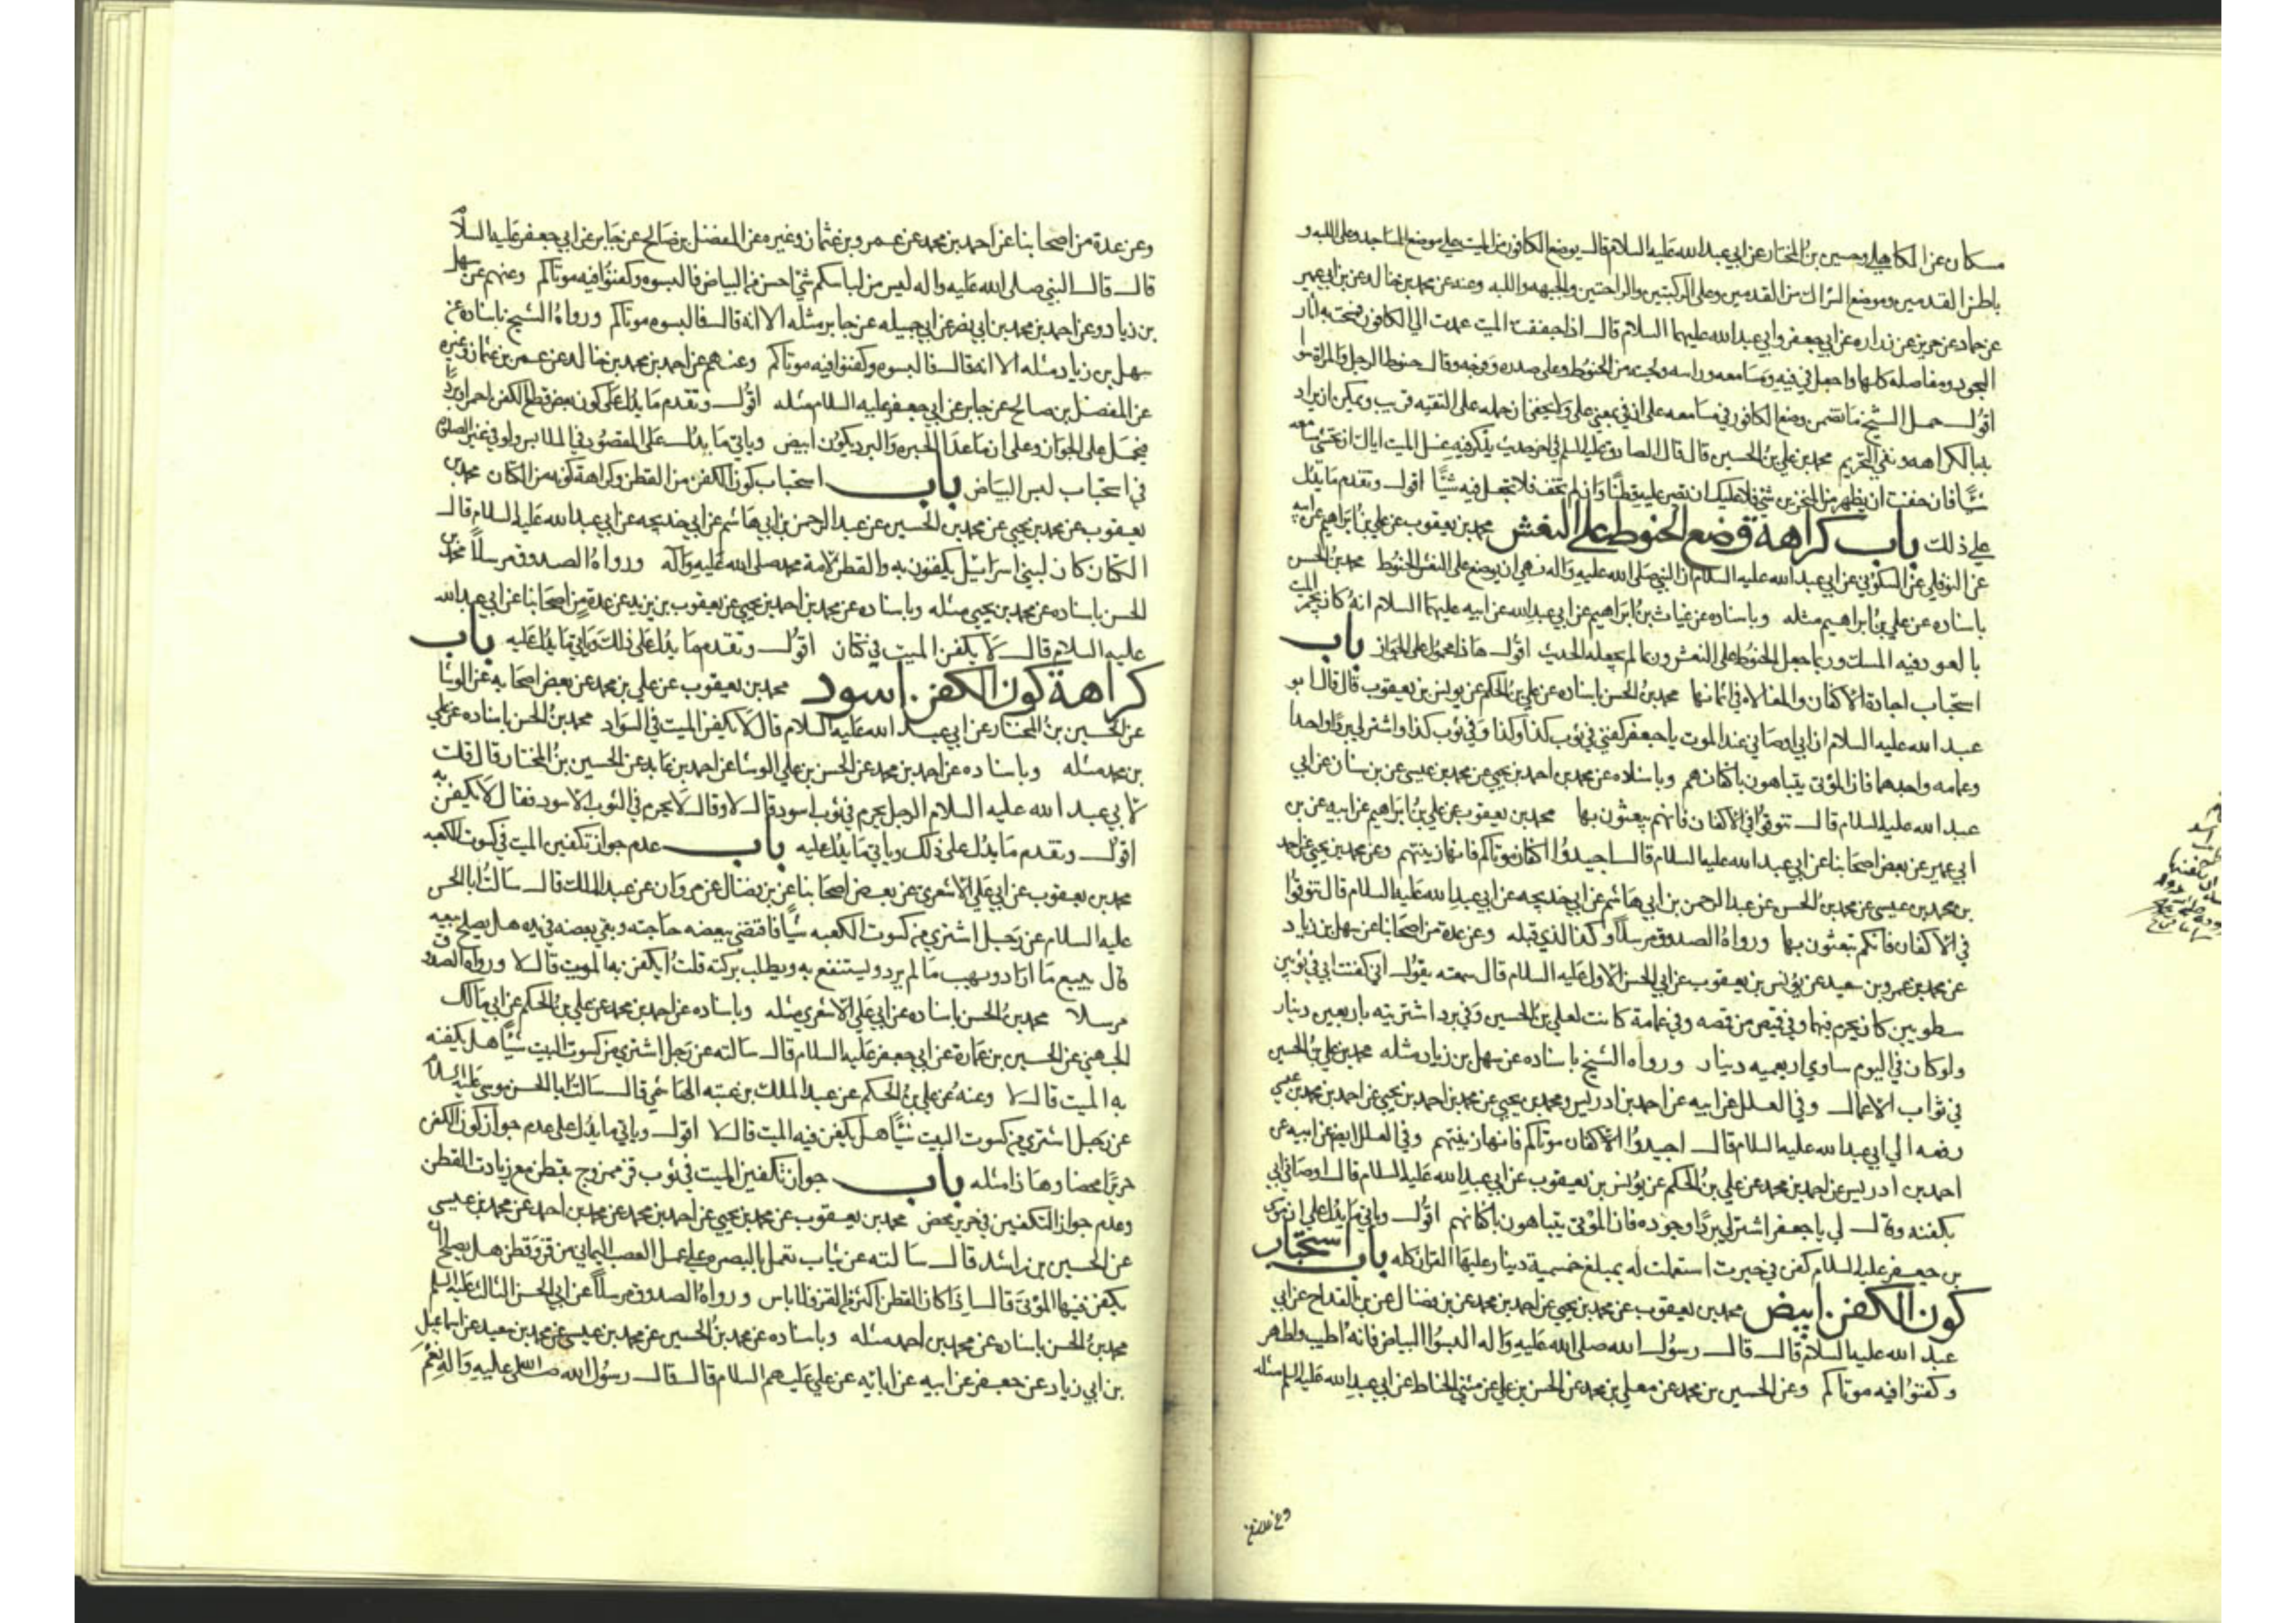 مسكان عن الكاهلي وحسين بن المختار عن ابي عبد الله عليه السلام قال يوضع الكافور من الميت على موضع المساجد وعلى اللبه و
باطن القدمين وموضع الشراك من القدمين وعلى الركبتين والراحتين والجبهه واللبه وعنه عن محمد بن خالد عن بن ابي عمير
عن حماد عن حريز عن زراره عن ابي جعفر وابي عبد الله عليهما السلام قال اذا جففت الميت عمدت الى الكافور فمسحت به اثار
السجود ومفاصله كلها واجعل في فيه ومسامعه وراسه ولحيته من الحنوط وعلى صدره وفرجه وقال حنوط الرجل والمراة سوا
اقول حمل الشيخ ما تضمن وضع الكافور في مسامعه على ان في بمعنى على ولا يخفى ان حمله على التقيه قريب ويمكن ان يراد
بها الكراهه ونفي التحريم محمد بن علي بن الحسين قال قال الصادق عليه السلم في اخر حديث يذكر فيه غسل الميت اياك ان تحشي مسامعه
شيئًا فان خفت ان يظهر من المنخرين شي فلا عليك ان تصير عليه قطنًا وان لم تخف فلا تجعل فيه شيئًا اقول وتقدم ما يدل
على ذلك باب كراهة وضع الحنوط على النعش محمد بن يعقوب عن علي بن ابراهيم عن ابيه
عن النوفلي عن السكوني عن ابي عبد الله عليه السلام ان النبي صلى الله عليه واله نهى ان يوضع على النعش الحنوط محمد بن الحسن
باسناده عن علي بن ابراهيم مثله وباسناده عن غياث بن ابراهيم عن ابي عبد الله عن ابيه عليهما السلام انه كان يجمر الميت
بالعود فيه المسك وربما جعل الحنوط على النعش وربما لم يجعله الحديث اقول هاذا محمول على الجواز باب
استحباب اجادة الاكفان والمغالاه في اثمانها محمد بن الحسن باسناده عن علي بن الحكم عن يونس بن يعقوب قال قال ابو
عبد الله عليه السلام ان ابي اوصاني عند الموت يا جعفر كفني في ثوب كذا وكذا وفي ثوب كذا واشتر لي بردًا واحدا
وعمامه واجدهما فان الموتى يتباهون باكفانهم وباسناده عن محمد بن احمد بن يحيى عن محمد بن عيسى عن بن سنان عن ابي
عبد الله عليه السلام قال تنوقوا في الاكفان فانهم يبعثون بها محمد بن يعقوب عن علي بن ابراهيم عن ابيه عن بن
ابي عمير عن بعض اصحابنا عن ابي عبد الله عليه السلام قال اجيدوا اكفان موتاكم فانها زينتهم وعن محمد بن يحيى عن احمد
بن محمد بن عيسى عن محمد بن الحسن عن عبد الرحمن بن ابي هاشم عن ابي خديجه عن ابي عبد الله عليه السلام قال تنوقوا
في الاكفان فانكم تبعثون بها ورواه الصدوق مرسلًا وكذا الذي قبله وعن عدة من اصحابنا عن سهل بن زياد
عن محمد بن عمرو بن سعيد عن يونس بن يعقوب عن ابي الحسن الاول عليه السلام قال سمعته يقول اني كفنت ابي في ثوبين
سطويين كان يحرم فيهما وفي قميص من قمصه وفي عمامة كانت لعلي بن الحسين وفي برد اشتريته باربعين دينار
ولو كان في اليوم ساوي اربعميه دينار ورواه الشيخ باسناده عن سهل بن زياد مثله محمد بن علي بن الحسين
في ثواب الاعمال وفي العلل عن ابيه عن احمد بن ادريس ومحمد بن يحيى عن محمد بن احمد بن يحيى عن احمد بن محمد بن عيسى
رفعه الى ابي عبد الله عليه السلام قال اجيدوا الاكفان موتاكم فانها زينتهم وفي العلل ايضا عن ابيه عن
احمد بن ادريس عن احمد بن محمد عن علي بن الحكم عن يونس بن يعقوب عن ابي عبد الله عليه السلام قال اوصاني ابي
بكفنه وقال لي يا جعفر اشتر لي بردًا وجوده فان الموتى يتباهون باكفانهم اقول وياتي ما يدل على ان موسى
بن جعفر عليه السلام كفن في حبرت استعملت له بمبلغ خمسمية دينار وعليها القران كله باب استحباب
كون الكفن ابيض محمد بن يعقوب عن محمد بن يحيى عن احمد بن محمد عن بن فضال عن بن القداح عن ابي
عبد الله عليه السلام قال قال رسول الله صلى الله عليه واله البسوا البياض فانه اطيب واطهر
وكفنوا فيه موتاكم وعن الحسين بن محمد عن معلى بن محمد عن الحسن بن علي عن مثنى الحناط عن ابي عبد الله عليه السلم مثله
وعن عدة
وعن عدة من اصحابنا عن احمد بن محمد عن عمرو بن عثمان وغيره عن المفضل بن صالح عن جابر عن ابي جعفر عليه السلام
قال قال النبي صلى الله عليه واله ليس من لباسكم شي احسن من البياض فالبسوه وكفنوا فيه موتاكم وعنهم عن سهل
بن زياد وعن احمد بن محمد بن ابي نصر عن ابي جميله عن جابر مثله الا انه قال فالبسوه موتاكم ورواه الشيخ باسناده عن
سهل بن زياد مثله الا انه قال فالبسوه وكفنوا فيه موتاكم وعنهم عن احمد بن محمد بن خالد عن عمرو بن عثمان وغيره
عن المفضل بن صالح عن جابر عن ابي جعفر عليه السلام مثله اقول وتقدم ما يدل على كون بعض قطع الكفن احمر او بردًا
فيحمل على الجواز وعلى ان ما عدا الحبره والبرد يكون ابيض وياتي ما يدل على المقصود في الملابس ولو في غير الصلوة
في استحباب لبس البياض باب استحباب كون الكفن من القطن وكراهة كونه من الكتان محمد بن
يعقوب عن محمد بن يحيى عن محمد بن الحسين عن عبد الرحمن بن ابي هاشم عن ابي خديجه عن ابي عبد الله عليه السلام قال
الكتان كان لبني اسرائيل يكفنون به والقطن لامة محمد صلى الله عليه واله ورواه الصدوق مرسلًا محمد بن
الحسن باسناده عن محمد بن يحيى مثله وباسناده عن محمد بن احمد بن يحيى عن يعقوب بن يزيد عن عدة من اصحابنا عن ابي عبد الله
عليه السلام قال لا يكفن الميت في كتان اقول وتقدم ما يدل على ذلك وياتي ما يدل عليه باب
كراهة كون الكفن اسود محمد بن يعقوب عن علي بن محمد عن بعض اصحابه عن الوشا
عن الحسين بن المختار عن ابي عبد الله عليه السلام قال لا يكفن الميت في السواد محمد بن الحسن باسناده عن علي
بن محمد مثله وباسناده عن احمد بن محمد عن الحسن بن علي الوشا عن احمد بن عايد عن الحسين بن المختار قال قلت
لابي عبد الله عليه السلام الرجل يحرم في ثوب اسود قال لا وقال لا يحرم في الثوب الاسود فقال لا يكفن به
اقول وتقدم ما يدل على ذلك وياتي ما يدل عليه باب عدم جواز تكفين الميت في كسوت الكعبه
محمد بن يعقوب عن ابي علي الاشعري عن بعض اصحابنا عن بن فضال عن مروان عن عبد الملك قال سالت ابا الحسن
عليه السلام عن رجل اشترى من كسوت الكعبه شيًا فاقتضى ببعضه حاجته وبقي بعضه في يده هل يصلح بيعه
قال يبيع ما اراد ويهب ما لم يرد ويستنفع به ويطلب بركته قلت ايكفن به الميت قال لا ورواه الصدوق
مرسلا محمد بن الحسن باسناده عن ابي علي الاشعري مثله وباسناده عن احمد بن محمد عن علي بن الحكم عن ابي مالك
الجهني عن الحسين بن عمارة عن ابي جعفر عليه السلام قال سالته عن رجل اشترى من كسوت البيت شيًا هل يكفنه
به الميت قال لا وعنه عن علي بن الحكم عن عبد الملك بن عتبه الهاشمي قال سالت ابا الحسن موسى عليه السلام
عن رجل اشترى من كسوت البيت شيئًا هل يكفن فيه الميت قال لا اقول وياتي ما يدل على عدم جواز كون الكفن
حريرًا محضا وهاذا مثله باب جواز تكفين الميت في ثوب قز ممزوج بقطن مع زيادت القطن
وعدم جواز التكفين في حرير محض محمد بن يعقوب عن محمد بن يحيى عن احمد بن محمد عن محمد بن احمد عن محمد بن عيسى
عن الحسين بن راشد قال سالته عن ثياب تعمل بالبصره على عمل العصب اليماني من قز وقطن هل يصلح ان
يكفن فيها الموتى قال اذا كان القطن اكثر من القز فلا باس ورواه الصدوق مرسلًا عن ابي الحسن الثالث عليه السلم
محمد بن الحسن باسناده عن محمد بن احمد مثله وباسناده عن محمد بن الحسين عن محمد بن عيسى عن محمد بن سعيد عن اسماعيل
بن ابي زياد عن جعفر عن ابيه عن ابائه عن علي عليهم السلام قال قال رسول الله صلى الله عليه واله نعم